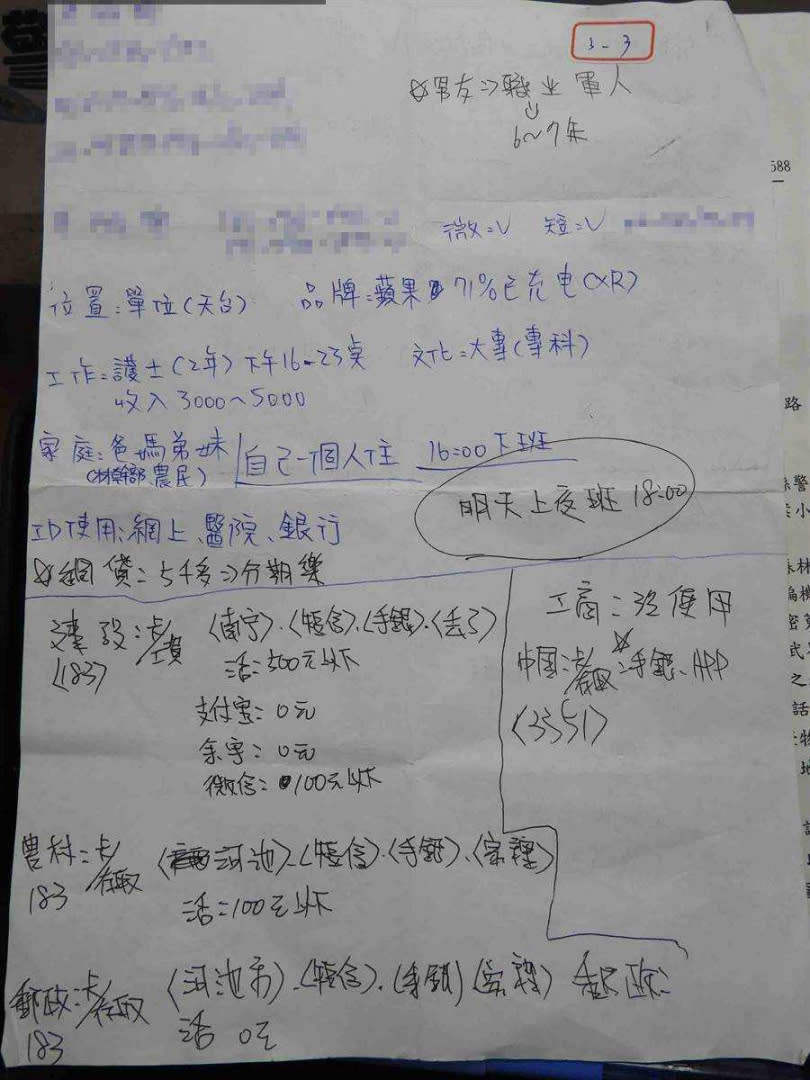 3-3
男友⇒職业軍人
⇓
6~7年
588
微=V 短=V
位置:單位(天台) 品牌:蘋果 71%已充电(XR)
工作:護士(2年)下午16-23點 文化=大專(專科)
收入3000~5000
家庭:爸媽弟妹 自己一個人住 16:00下班
農民)
明天上夜班18:00
ID使用:網上、醫院、銀行
網貸:5千多⇒分期樂
建設:卡/ 〈南宁〉·〈短信〉·〈手銀〉·〈丢了〉
〈183〉
活:500元以下
支付宝:0元
余宝:0元
微信:100元以下
工商:沒使用
中国:卡/存取:手銀、APP
〈3551〉
農村:卡/存取 河池〉·〈短信〉·〈手銀〉·〈家裡〉
183
活:100元以下
郵政:卡/存取 〈河池市〉·〈短信〉·〈手銀〉〈家裡〉
183
活 0元
路
警
小
林
編
密
式
之
話
物
地